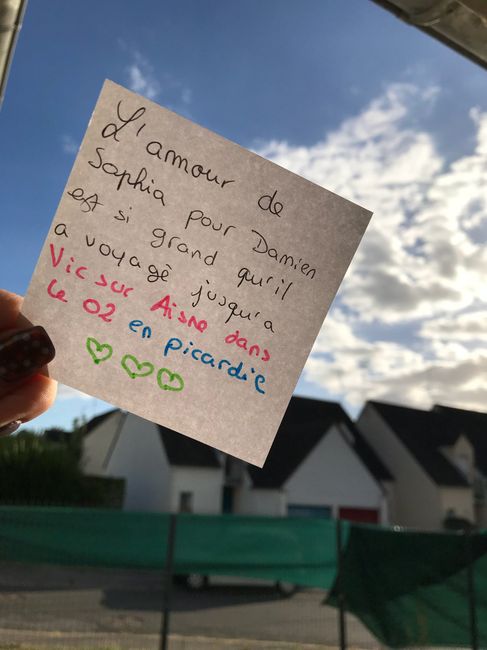 L'amour de
Saphia pour Damien
est si grand qu'il
a voyagé jusqu'a
Vic sur Aisne dans
le 02 en picardie